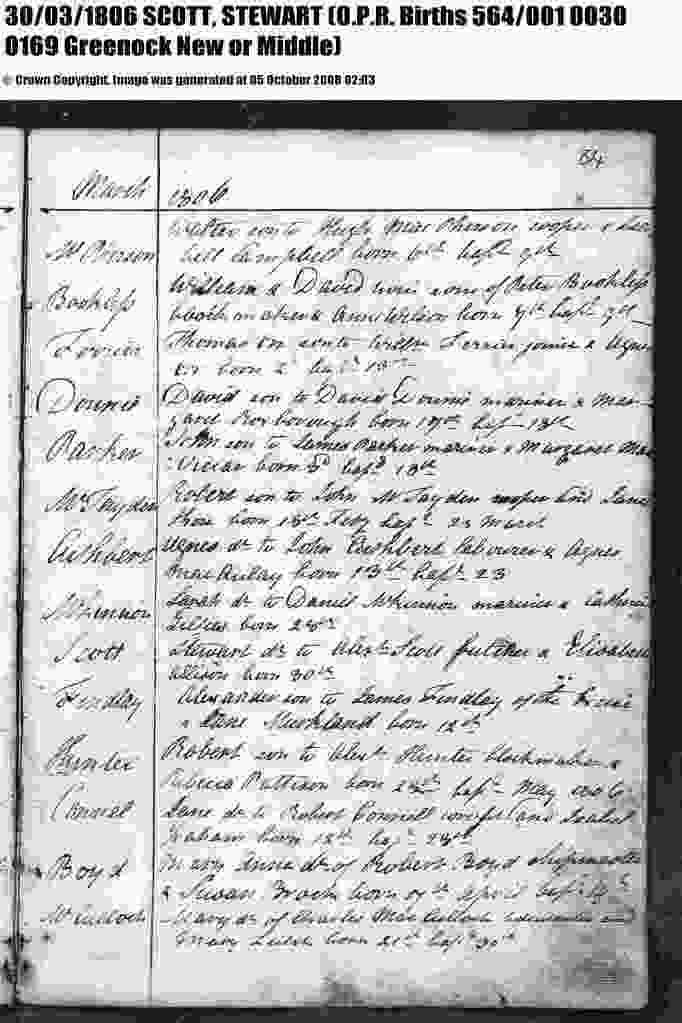 30/03/1806 SCOTT, STEWART (O.P.R. Births 564/001 0030
0169 Greenock New or Middle)
© Crown Copyright. Image was generated at 05 October 2008 02:03
34
March 1806
Walter son to Hugh Mac Pherson cooper &
McPherson Campbell born 6th bapt 9th
William & David twin sons of Peter Booklefs
Booklefs & Ann Wilson born 7th bapt 9th
Ferrier Thomas son to Willm Ferrier joiner & Agnes
born 2d bapt 13th
Downie David son to David Downie mariner & Mar-
Roxborough born 17th bapt 18th
Parker John son to James Parker mariner & Margaret Mac
Vicar born 5th bapt 18th
Robert son to John cooper and Jane
born 18th Feby bapt 23 March
Cuthbert Agnes dr to John Cuthbert labourer & Agnes
MacAulay born 13th bapt 23
McKinnon Sarah dr to Daniel McKinnon mariner & Catherine
Gillies born 28th
Scott Stewart dr to Alexr Scott butcher & Elisabeth
Allison born 30th
Findlay Alexander son to James Findlay of the Excise
& Jane Muckland born 12th
Hunter Robert son to Alexr Hunter blockmaker &
Rebecca Pattison born bapt May 1806
Connel Jane dr to Robert Connell and Isabel
Graham born 12th bapt
Boyd Mary Anne dr of Robert Boyd shipmaster
& Susan Brock born April bapt
McCulloch Mary dr of Charles MacCulloch and
Mary born 21st bapt 30th